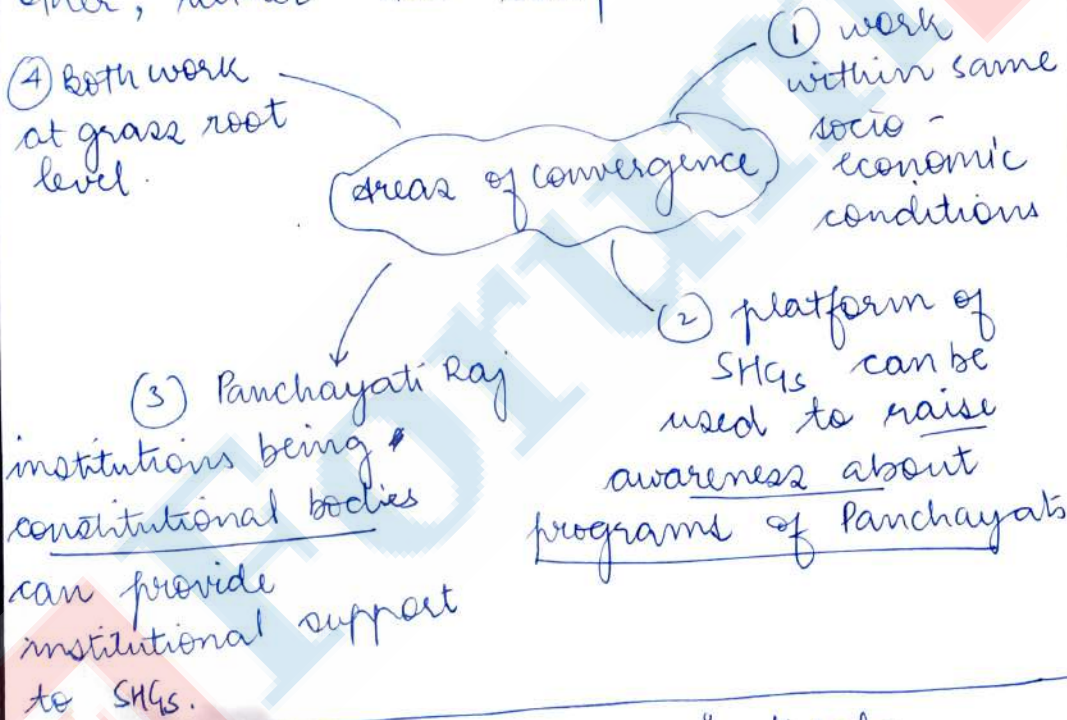 ④ Both work
at grass root
level.
① work
within same
socio -
economic
conditions
Areas of convergence
② platform of
SHGs can be
used to raise
awareness about
programs of Panchayats
③ Panchayati Raj
institutions being
constitutional bodies
can provide
institutional support
to SHGs.
Forum